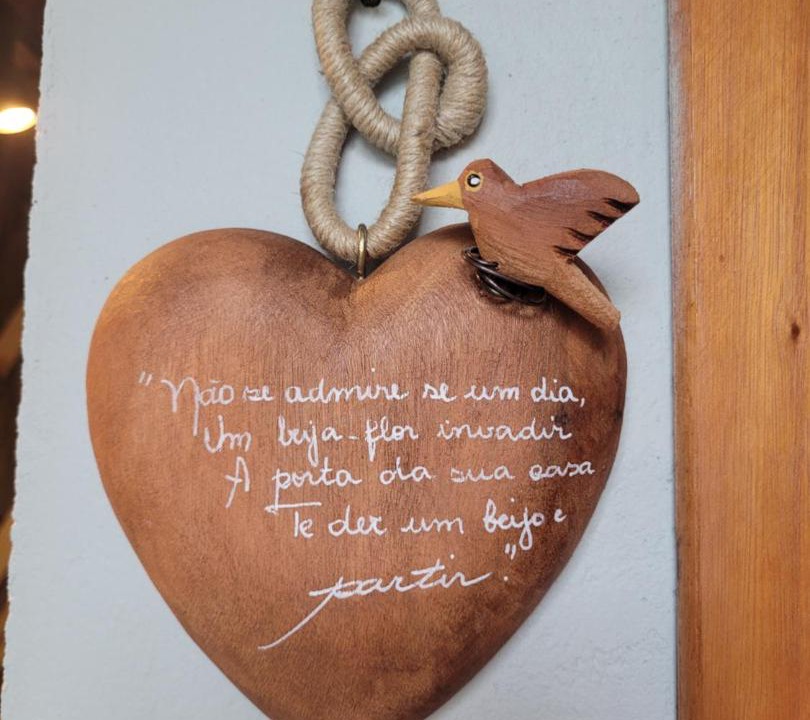 "Não se admire se um dia,
Um beija-flor invadir
A porta da sua casa
Te der um beijo e
partir."